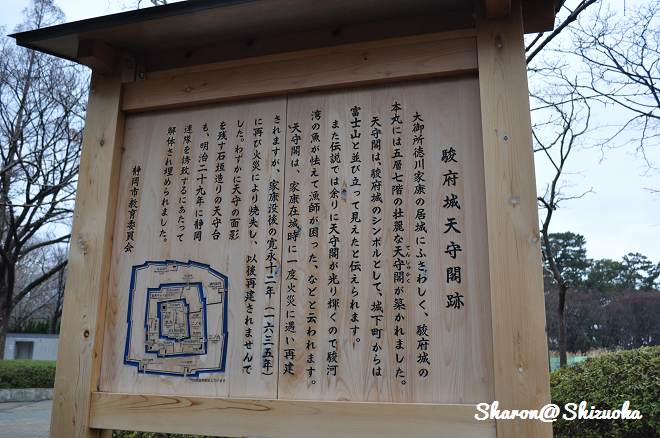 駿府城天守閣跡
大御所徳川家康の居城にふさわしく、駿府城の
本丸には五層七階の壮麗な天守閣が築かれました。
てんしゅかく
天守閣は、駿府城のシンボルとして、城下町からは
富士山と並び立って見えたと伝えられます。
また伝説では余りに天守閣が光り輝くので駿河
湾の魚が怯えて漁師が困った、などと云われます。
天守閣は、家康在城時に一度火災に遇い再建
されますが、家康没後の寛永十二年(一六三五年)
に再び火災により焼失し、以後再建されませんで
した。わずかに天守の面影
を残す石垣造りの天守台
も、明治二十九年に静岡
連隊を誘致するにあたって
解体され埋められました。
静岡市教育委員会
Sharon@Shizuoka